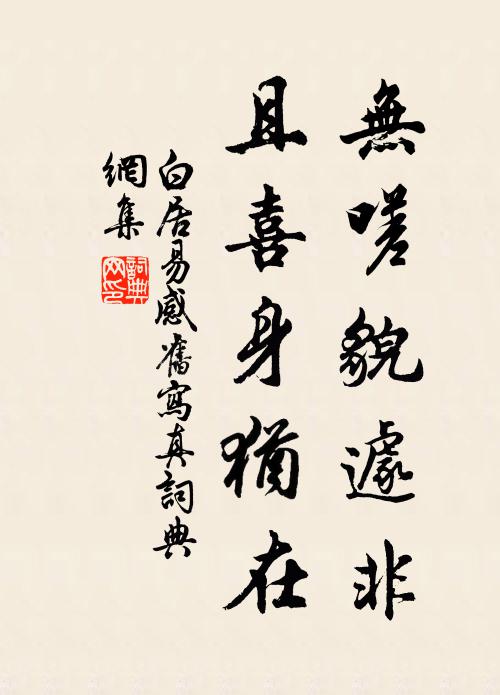 無嗟貌遽非
且喜身猶在
白居易感舊寫真詞典
網集
詞典
网印